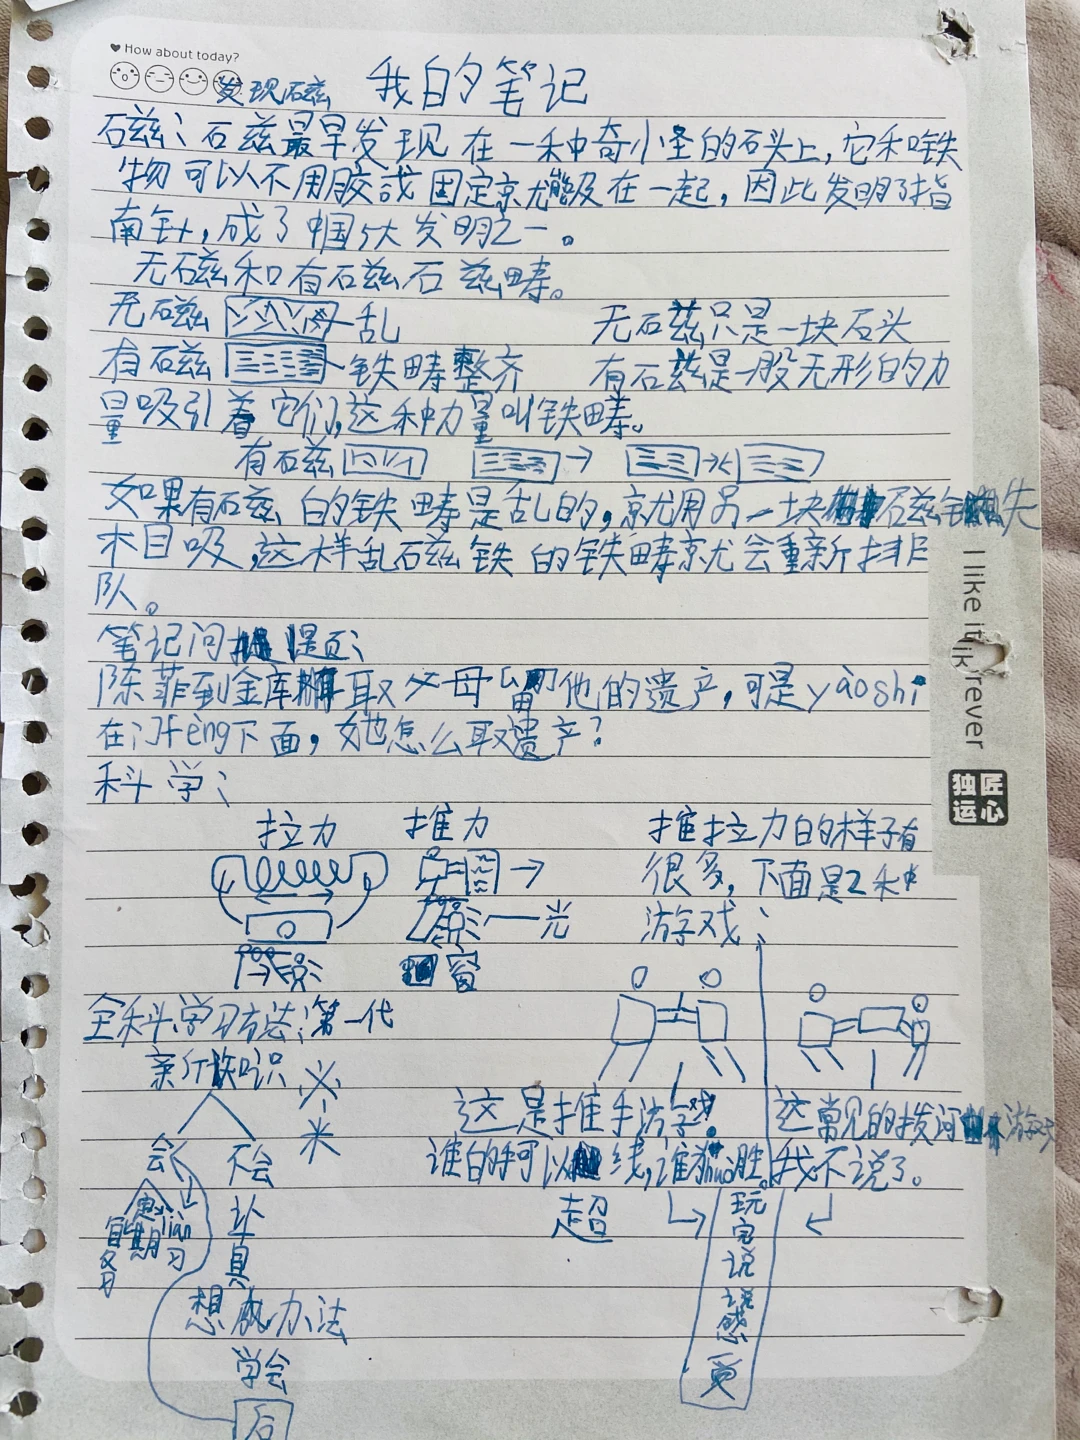 How about today?
发现石兹 我的笔记
石兹:石兹最早发现在一种奇小怪的石头上,它和铁
物可以不用胶或固定就能及在一起,因此发明了指
南针,成了中国5大发明之一。
无石兹和有石兹石兹畴。
无石兹 乱 无石兹只是一块石头
有石兹 铁畴整齐 有石兹是一股无形的力
量吸引着它们,这种力量叫铁畴。
有石兹
如果有石兹的铁畴是乱的,就用另一块石兹铁
木目吸,这样乱石兹铁的铁畴就会重新排
队。
笔记问题:
陈菲到金库取父母留他的遗产,可是yàoshi
在门fèng下面,她怎么取遗产?
科学:
拉力 推力 推拉力的样子有
很多,下面是2种
光 游字戏:
窗
全科学习方法:第一代
亲行 识
会 不会
这是推手游字戏. 这常见的拨河游字戏
谁的手可以 线,谁 胜。我不说了。
超
定期liàn习
自
习
具
想 办法
学会
后
玩完说说感
I like it
rever
独匠运心